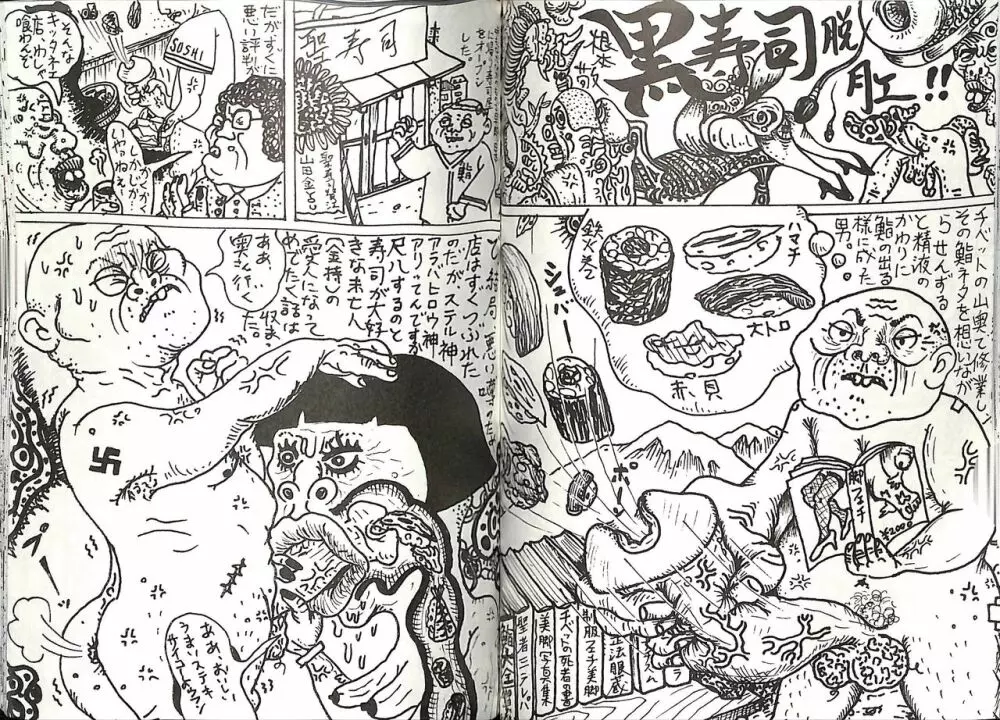 黒寿司脱肛!!
根本敬
チベットの山奥で修業し
その鮨ネタを想いながら
せんずると精液の
かわりに
鮨の出る
様に成た
男。
ハマチ
鉄火巻
大トロ
赤貝
シュバー
ポーン
脚フェチ
¥2000
法服蔵
制服フェチ美脚
チベットの死者の書
美脚写真集
聖者ミラレパ
鮨大全
をオープン
した。
聖寿司
鮨
山田金
だがすぐに
悪い評判が
SUSHI
そんな
キッタネエ
店、わしゃ
喰わんぞ
店はすぐつぶれた
のだがステル神
アラバトロウ神
アリってんでする
尺八するのと
寿司が大好
きな未亡人
(金持)の
愛人になて
めでたく話は
収まった。
ああ、
奥へ行く
卍
ああ、おいしい
うま、ステキ
サイコーよそ!